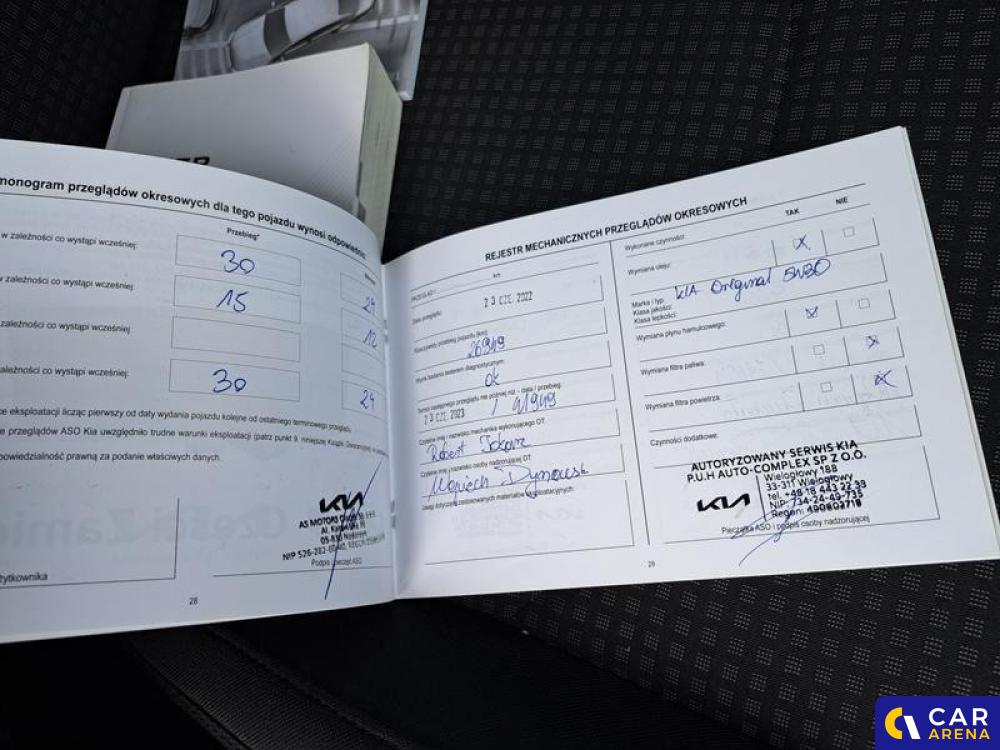 monogram przeglądów okresowych dla tego pojazdu wynosi odpowiednio
Przebieg*
w zależności co wystąpi wcześniej:
30
24
w zależności co wystąpi wcześniej:
15
12
zależności co wystąpi wcześniej
zależności co wystąpi wcześniej:
30
24
ce eksploatacji licząc pierwszy od daty wydania pojazdu kolejne od ostatniego terminowego przeglądu.
e przeglądów ASO Kia uwzględniło trudne warunki eksploatacji (patrz punkt 9. niniejszej Książki
powiedzialność prawną za podanie właściwych danych.
KIA
AS MOTORS
05-830
NIP 526-282-
Podpis i pieczęć ASO
żytkownika
28
REJESTR MECHANICZNYCH PRZEGLĄDÓW OKRESOWYCH
PRZEGLĄD
km
Data przeglądu:
23 CZE. 2022
Rzeczywisty przebieg pojazdu (km):
26949
Wynik badania testerem diagnostycznym:
ok
Termin następnego przeglądu nie później niż - data / przebieg:
23 CZE. 2023 / 41949
Czytelne imię i nazwisko mechanika wykonującego OT
Robert
Czytelne imię i nazwisko osoby nadzorującej OT
Wojciech
Uwagi dotyczące zastosowanych materiałów eksploatacyjnych
Wykonane czynności:
TAK
NIE
Wymiana oleju:
X
Marka i typ
Klasa jakości:
Klasa lepkości:
KIA Original 5W30
Wymiana płynu hamulcowego:
Wymiana filtra paliwa:
X
Wymiana filtra powietrza:
X
Czynności dodatkowe:
AUTORYZOWANY SERWIS KIA
P.U.H AUTO-COMPLEX SP Z O.O.
KIA
Wielogłowy 188
33-311 Wielogłowy
tel. +48 18 443 22 33
NIP: 734-24-49-735
Regon: 490803718
Pieczątka ASO i podpis osoby nadzorującej
29
CAR
ARENA